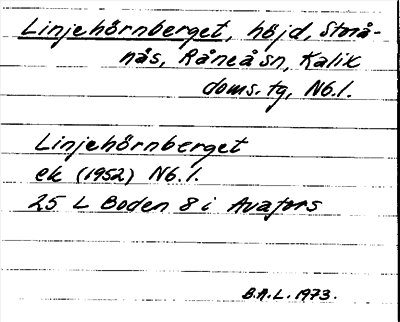 Linjehörnberget, höjd, Storå-
nås, Råneå sn, Kalix
doms. tg, Nb.l.
Linjehörnberget
ek (1952) Nb.l.
25 L Boden 8 i Avafors
B.A.L. 1973.